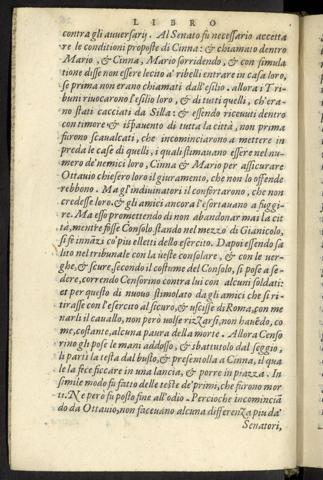 LIBRO
contra gli auuersarij. Al Senato fu necessario accetta
re le conditioni proposte di Cinna: & chiamato dentro
Mario, & Cinna, Mario sorridendo, & con simula
tione disse non essere lecito a' ribelli entrare in casa loro,
se prima non erano chiamati dall'esilio. allora i Tri
buni riuocarono l'esilio loro, & di tutti quelli, ch'era-
no stati cacciati da Silla: & essendo riceuuti dentro
con timore & ispauento di tutta la città, non prima
furono scaualcati, che incominciarono a mettere in
preda le case di quelli, i quali stimauano essere nel nu-
mero de' nemici loro, Cinna & Mario per assicurare
Ottauio chiesero loro il giuramento, che non lo offende
rebbono. Ma gl'indiuinatori il confortarono, che non
credesse loro. & gli amici ancora l'esortauano a fuggi-
re. Ma esso promettendo di non abandonar mai la cit
tà, mentre fosse Consolo, stando nel mezzo di Gianicolo,
si fe innāzi co' piu elletti dello esercito. Dapoi essendo sa
lito nel tribunale con la ueste consolare, & con le ver-
ghe, & scure, secondo il costume del Consolo, si pose a se-
dere, correndo Censorino contra lui con alcuni soldati:
et per questo di nuouo stimolato da gli amici che si ri-
tirasse con l'esercito al sicuro, & uscisse di Roma, con me
narli il cauallo, non però uolse rizzarsi, non hauēdo, co
me, costante, alcuna paura della morte. Allora Censo
rino gli pose le mani addosso, & sbattutolo dal seggio,
li partì la testa dal busto, & presentolla a Cinna, il qua
le la fece ficcare in una lancia, & porre in piazza. In
simile modo fu fatto delle teste de' primi, che furono mor
ti. Ne però fu posto fine all'odio. Percioche incominciā
do da Ottauio, non faceuano alcuna differenza piu da'
Senatori,